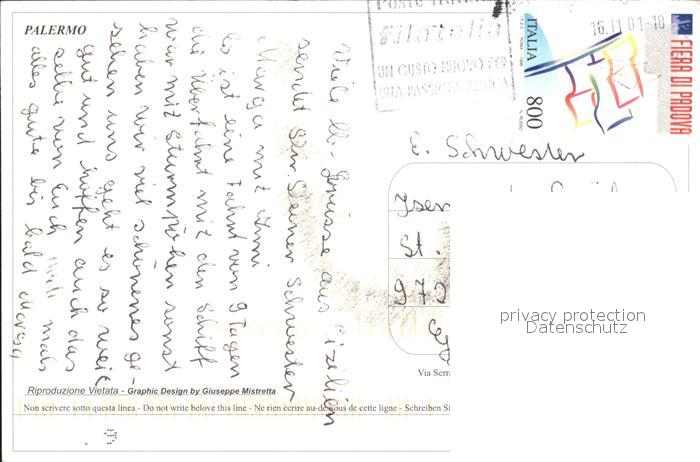 PALERMO
Viele lb. Grüsse aus Sizilien
sendet Ehrw. Schwester
Marga mit
Es ist eine Fahrt von 9 Tagen
die Überfahrt mit den Schiff
war mit Sturm sonst
haben wir viel schönes ge-
sehen uns geht es so weit
gut und hoffen auch das
selbe von Euch mals
alles gute bis bald
Riproduzione Vietata - Graphic Design by Giuseppe Mistretta
Non scrivere sotto questa linea - Do not write belove this line - Ne rien écrire au-dessous de cette ligne - Schreiben Si
Poste
filatelia
UN GUSTO NUOVO PER
UNA PASSIONE ANTICA
ITALIA
800
16.11.01-18
FIERA DI PADOVA
E. Schwester
Isen
St.
972
Via Serra
privacy protection
Datenschutz